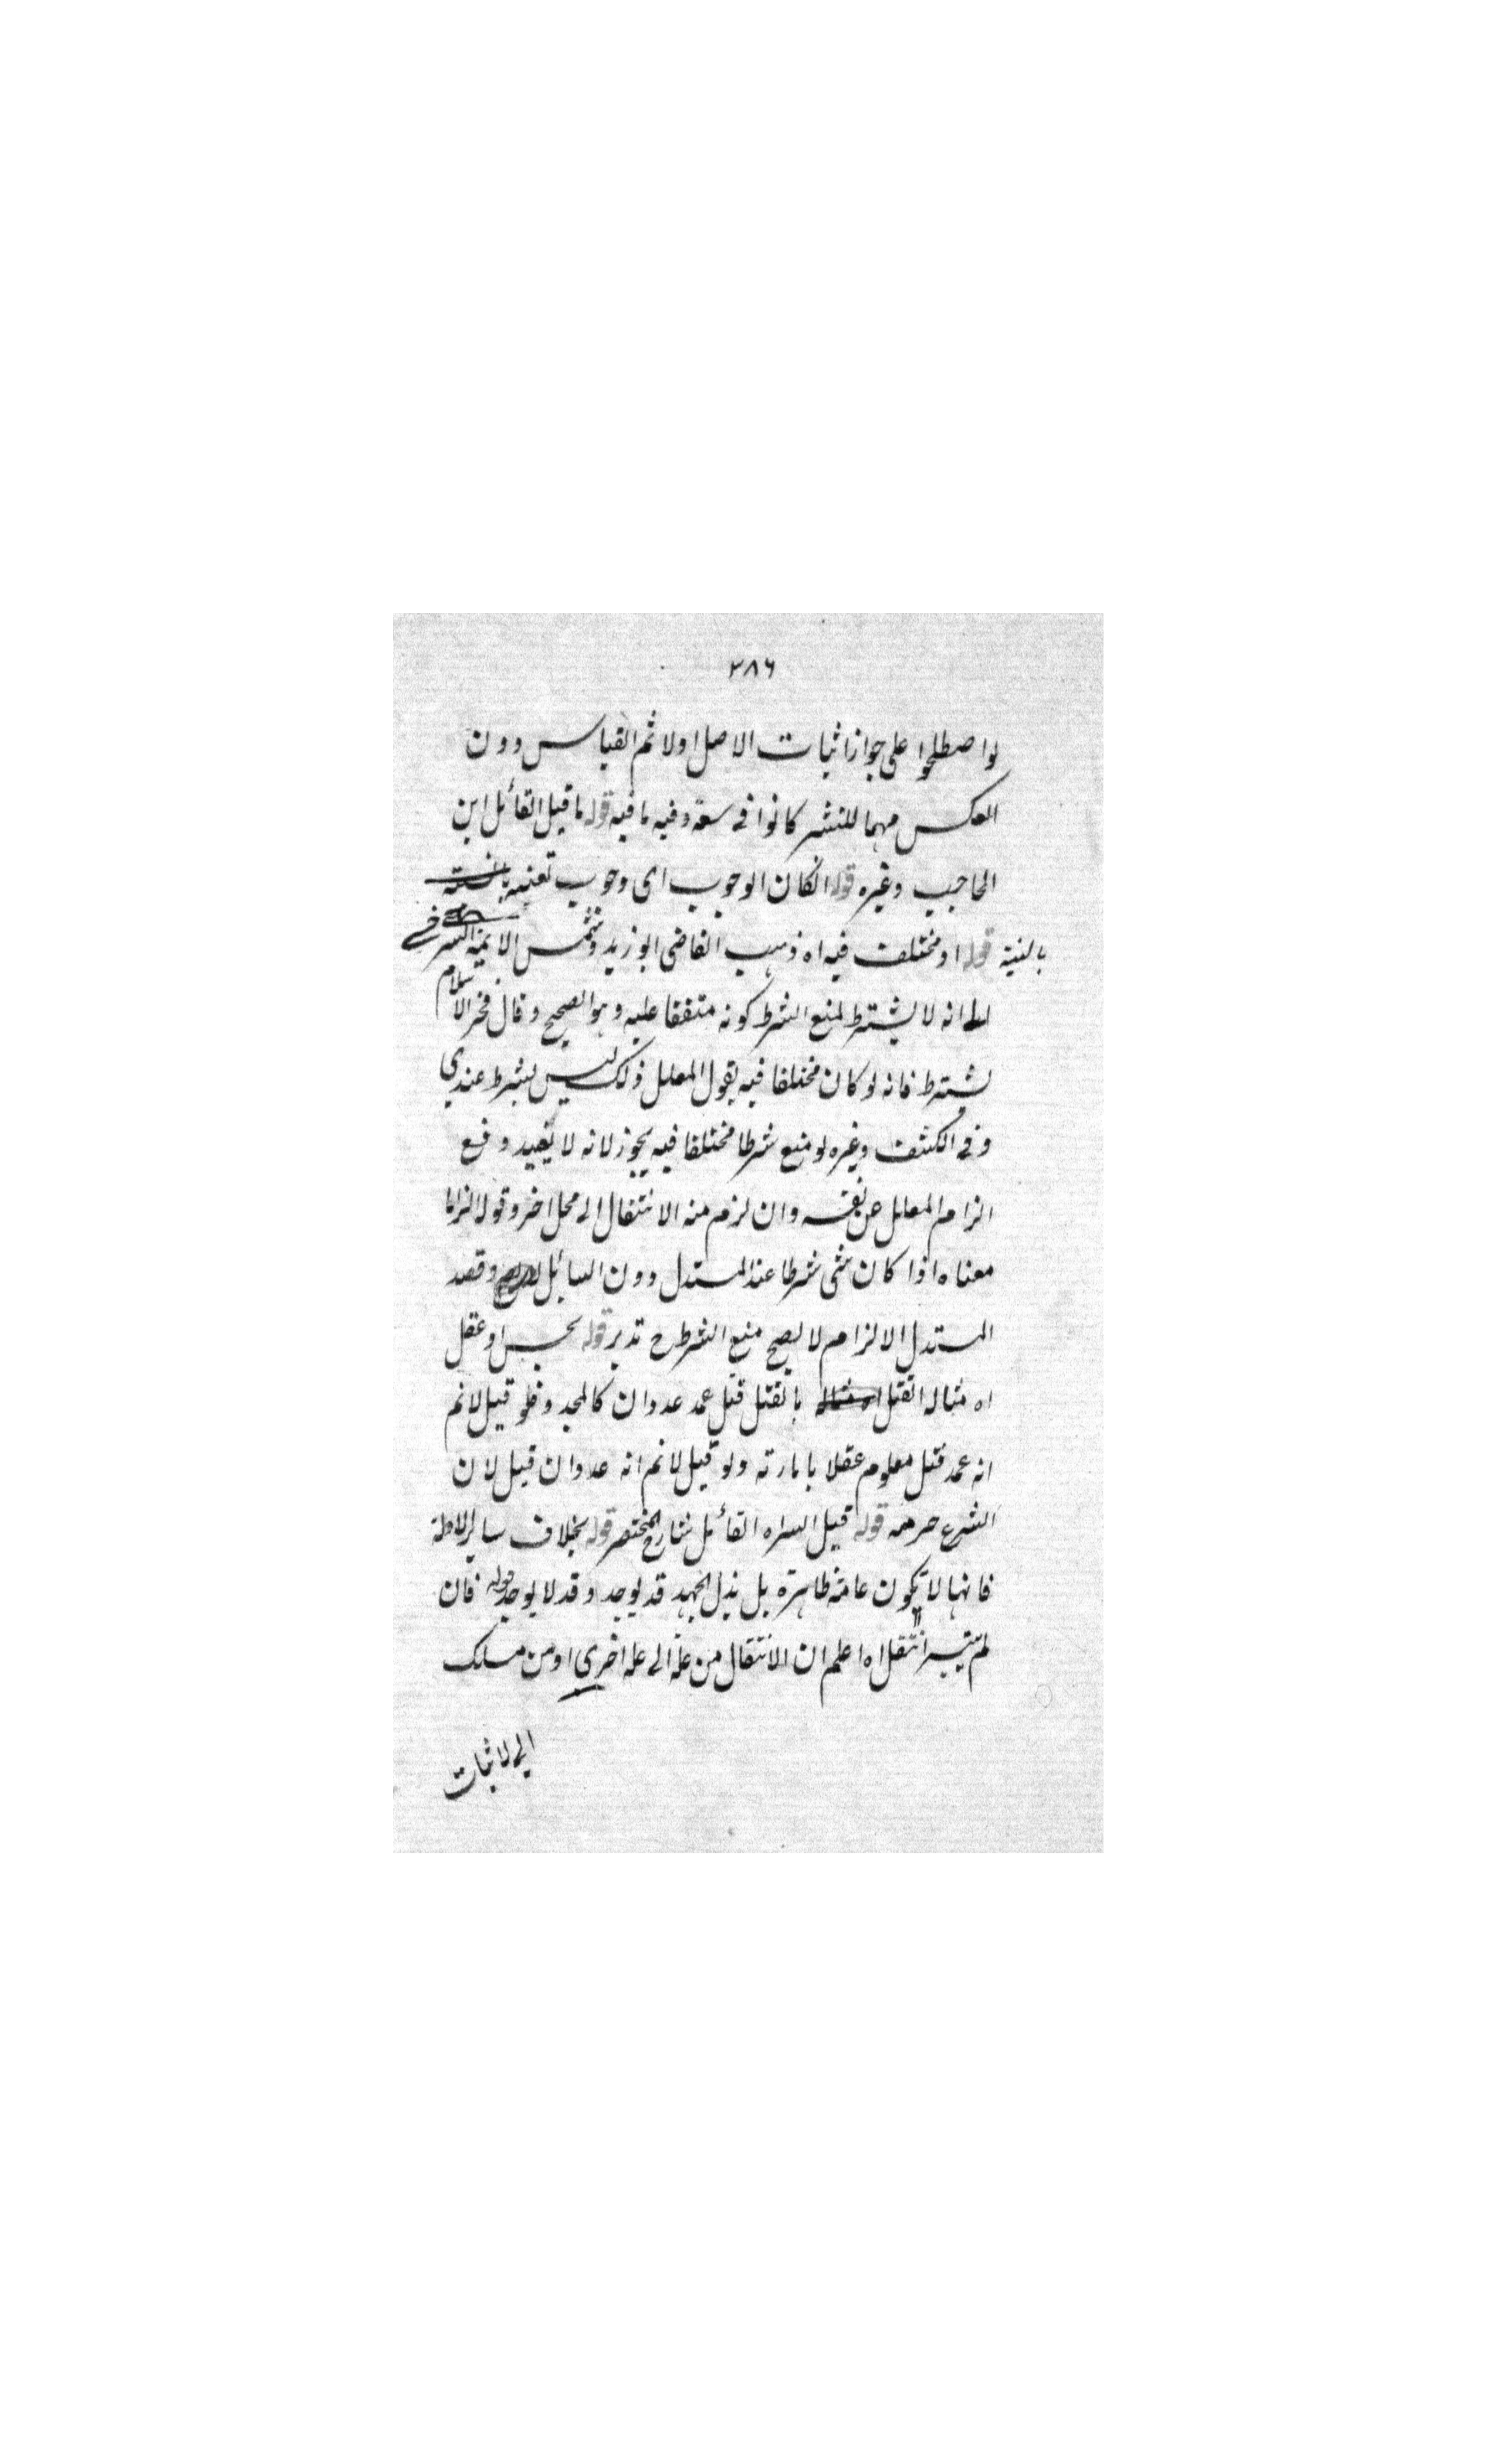 ٣٨٦
لو اصطلحوا على جواز اثبات الاصل اولا ثم القياس دون
العكس مهما للنشر كانوا فى سعة وفيه ما فيه قوله ما قيل القائل ابن
الحاجب وغيره قوله انكان الوجوب اى وجوب تعنيه
بالنية قوله او مختلف فيه اه ذهب القاضى ابو زيد وشمس الايمة السرخسى
الى انه لا يشترط لمنع الشرط كونه متفقا عليه وهو الصحيح وقال فخر الاسلام
يشترط فانه لو كان مختلفا فيه يقول المعلل ذلك ليس بشرط عندى
وفى الكشف وغيره لو منع شرطا مختلفا فيه يجوز لانه لا يفيد دفع
الزام المعلل عن نفسه وان لزم منه الانتقال الى محل اخر وقوله الزاما
معناه اذا كان شى شرطا عند المستدل دون السائل وقصد
المستدل الالزام لا يصح منع الشرط ح تدبر قوله بحس او عقل
اه مثاله القتل بالقتل قتل عمد عدوان كالمحدد فلو قيل لانم
انه عمد قيل معلوم عقلا بامارته ولو قيل لانم انه عدوان قيل لان
الشرع حرمه قوله قيل السراه القائل شارح المختصر قوله بخلاف ساير الادلة
فانها لا تكون عامة ظاهرة بل بذل الجهد قد يوجد وقد لا يوجد قوله فان
لم يتيسر انتقل اه اعلم ان الانتقال من علة الى علة اخرى او من مسلك
الى لاثبات